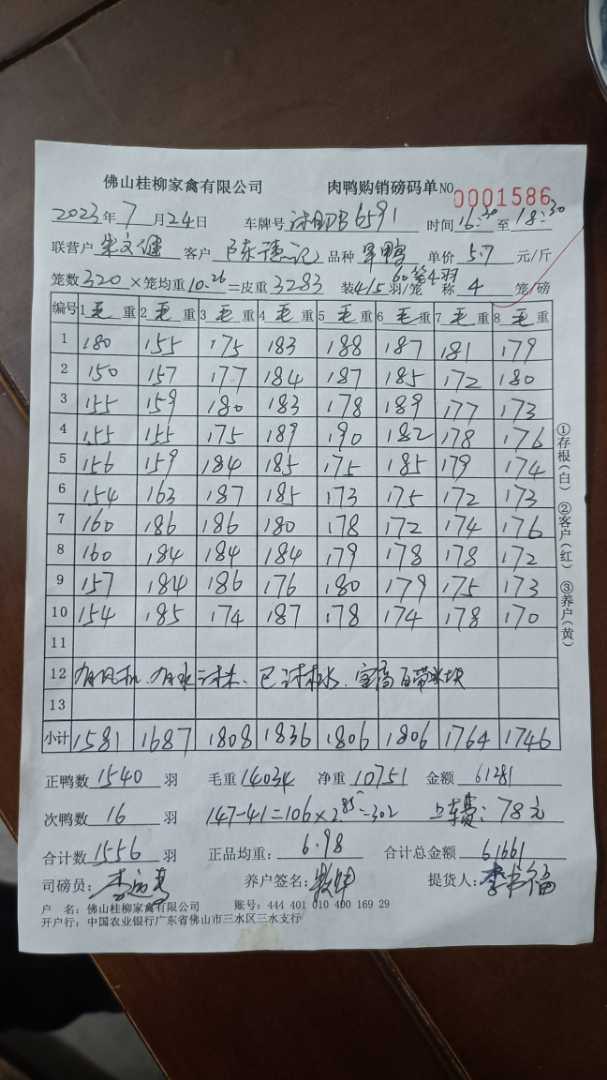 佛山桂柳家禽有限公司 肉鸭购销磅码单 NO 0001586
2023年7月24日 车牌号 B6591 时间16:30至18:30
联营户 客户 陈 记 品种 旱鸭 单价 5.7 元/斤
60笼4羽
笼数320×笼均重10.26=皮重3283 装4/5羽/笼 称 4 笼/磅
编号 1毛重 2毛重 3毛重 4毛重 5毛重 6毛重 7毛重 8毛重
1 180 155 175 183 188 187 181 179
2 150 157 177 184 187 185 172 180
3 155 159 180 183 178 189 177 173
4 155 155 175 189 190 182 178 176
5 156 159 184 185 175 185 179 174
6 154 163 187 185 173 175 172 173
7 160 186 186 180 178 172 174 176
8 160 184 184 184 179 178 178 172
9 157 184 186 176 180 179 175 173
10 154 185 174 187 178 174 178 170
11
12 有风机
13
小计 1581 1687 1808 1836 1806 1806 1764 1746
①存根(白) ②客户(红) ③养户(黄)
正鸭数1540羽 毛重14034 净重10751 金额 61281
次鸭数 16 羽 147-41=106×2.85=302 上车费：78元
合计数1556羽 正品均重：6.98 合计总金额 61661
司磅员： 养户签名： 提货人：李 福
户 名：佛山桂柳家禽有限公司 账号：444 401 010 400 169 29
开户行：中国农业银行广东省佛山市三水区三水支行